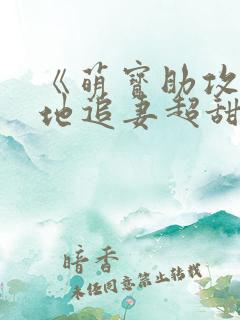 《萌宝助攻
地追妻超甜
暗香
未经同意禁止转载